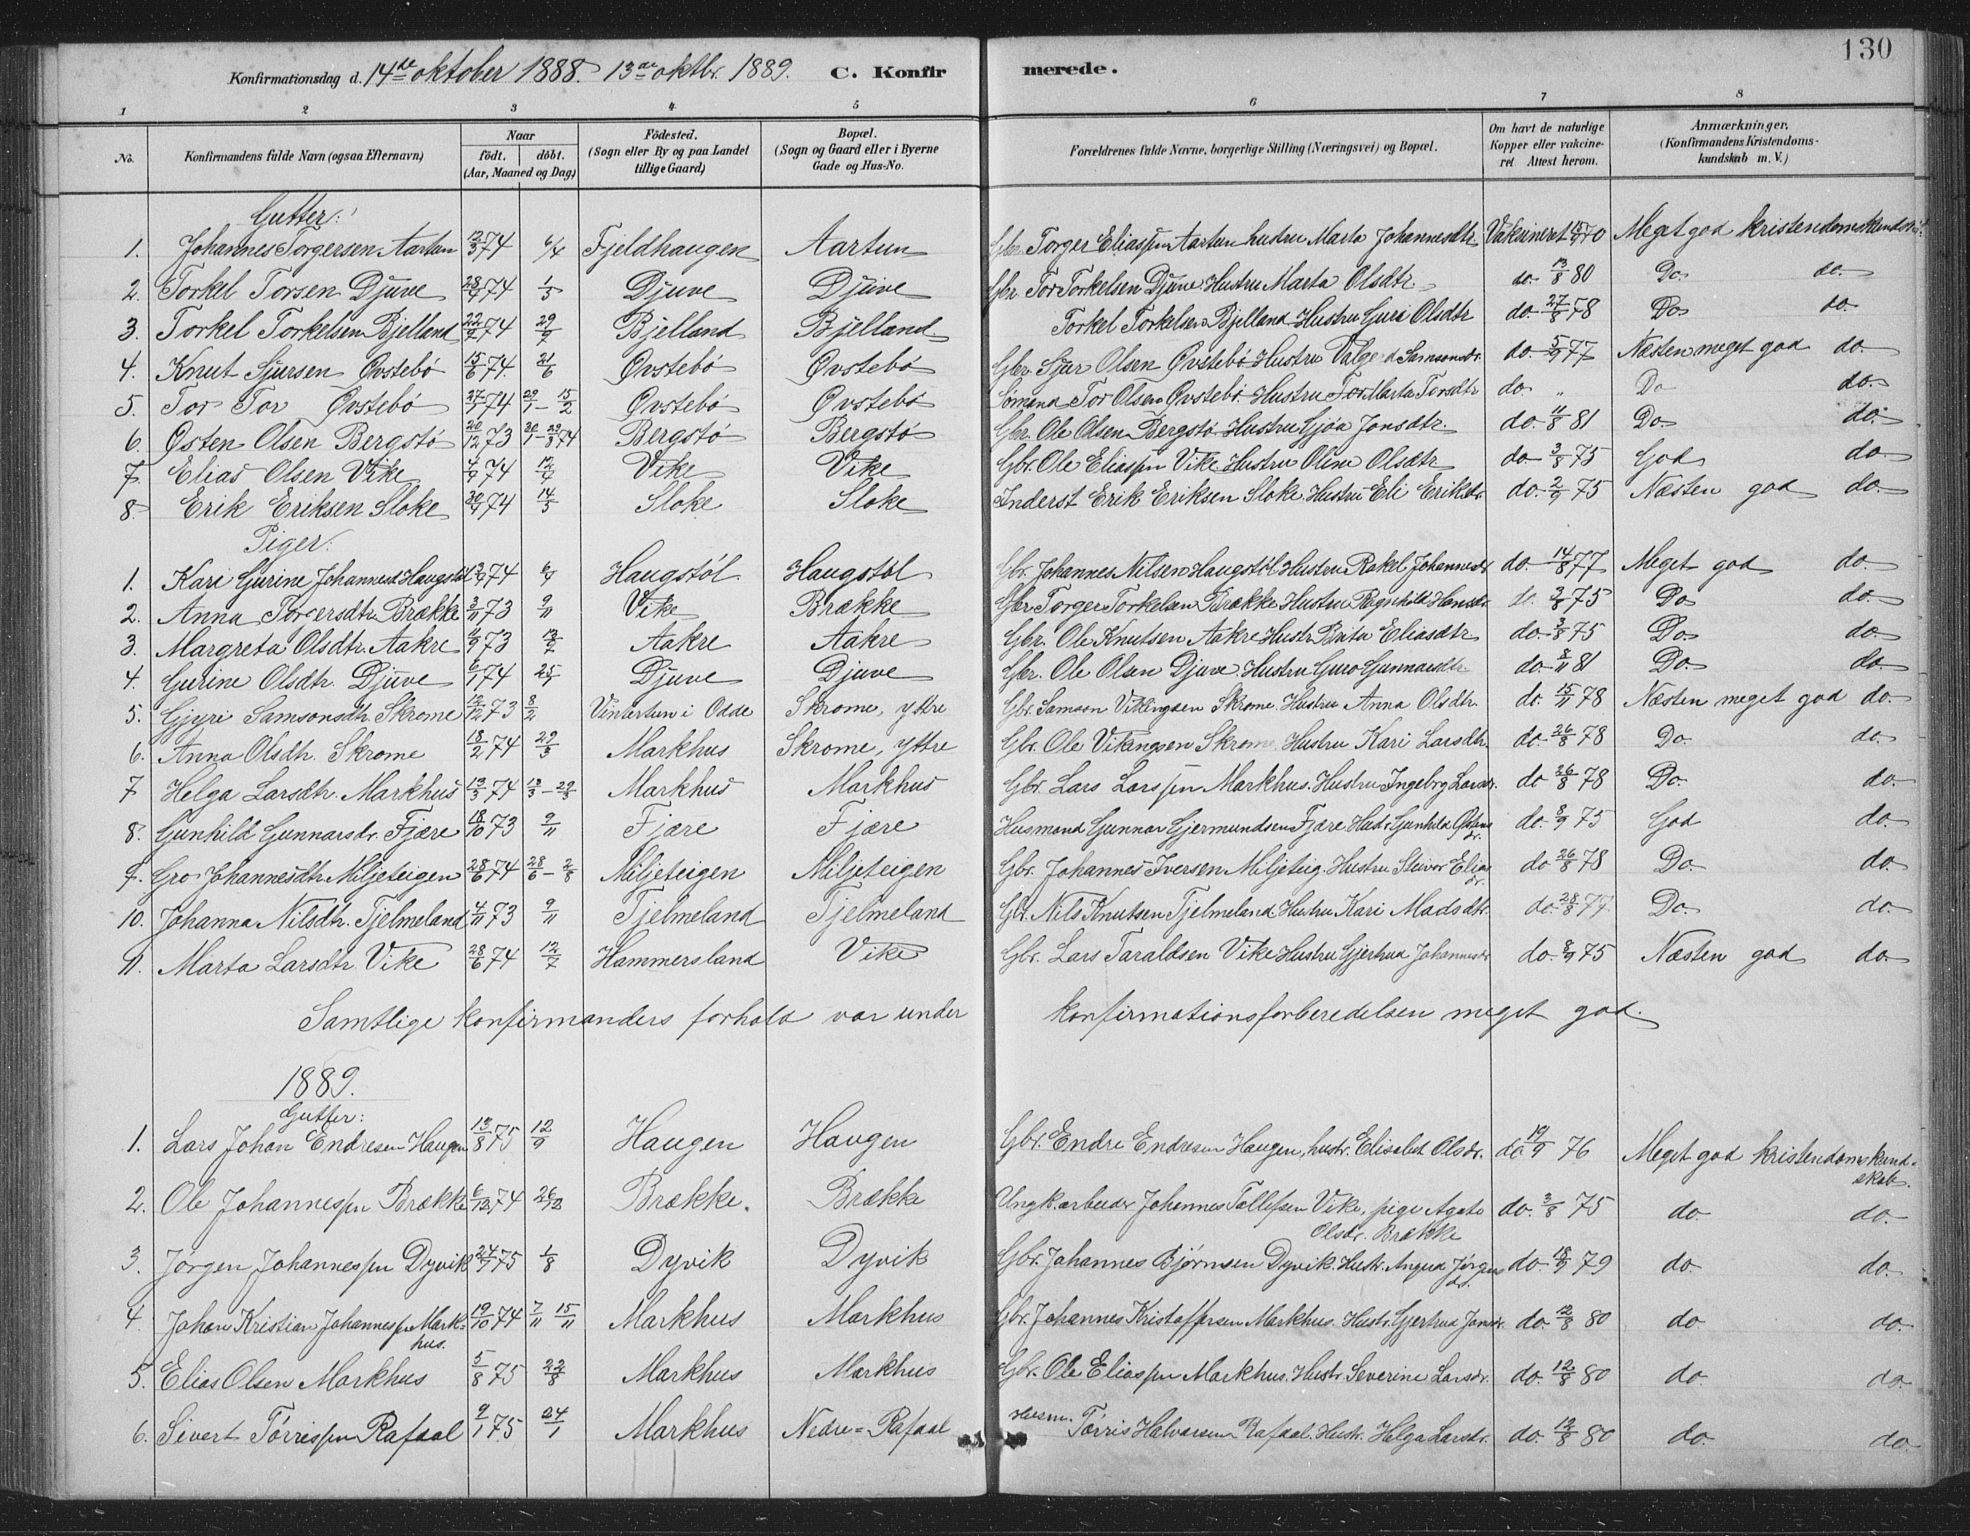 130
Konfirmationsdag d. 14de oktober 1888. 13de oktbr. 1889. C. Konfir merede.
1 2 3 4 5 6 7 8
No. Konfirmandens fulde Navn (ogsaa Efternavn) Naar födt. döbt. (Aar, Maaned og Dag) Födested. (Sogn eller By og paa Landet tillige Gaard) Bopæl. (Sogn og Gaard eller i Byerne Gade og Hus-No. Forældrenes fulde Navne, borgerlige Stilling (Næringsvei) og Bopæl. Om havt de naturlige Kopper eller vakcineret Attest herom. Anmærkninger, (Konfirmandens Kristendomskundskab m. V.)
Gutter:
1. Johannes Torgersen Aartun 12/3 74 6/4 Fjeldhaugen Aartun Gbr. Torger Eliasen Aartun hustru Marta Johannesdtr. Vakcineret Meget god kristendomskundskab.
2. Torkel Torsen Djuve 28/4 74 1/5 Djuve Djuve Gbr. Tor Torkelsen Djuve Hustru Marta Olsdtr do. 13/8 80 Do do.
3. Torkel Torkelsen Bjelland 74 Bjelland Bjelland Torkel Torkelsen Bjelland Hustru Guri Olsdtr do. 27/8 78 Do do.
4. Knut Sjursen Øvstebø 15/6 74. 21/6 Øvstebø Øvstebø Gbr. Sjur Olsen Øvstebø Hustru Samsonsdr. do. 5/9 77 Næsten meget god do.
5. Tor Tor Øvstebø 27/1 74 29/1 - 15/2 Øvstebø Øvstebø Sømand Tor Olsen Øvstebø Hustru Marta Torsdtr do " Do do.
6. Østen Olsen Bergstø 20/12 73 Bergstø Bergstø Gbr. Ole Olsen Bergstø Hustru Gjøa Jonsdtr. do. 11/8 81 Do do.
7. Elias Olsen Vike 74 Vike Vike Gbr. Ole Eliasen Vike Hustru Oline Olsdtr do 3/8 75 God do
8. Erik Eriksen Sloke 74 14/5 Sloke Sloke Inderst Erik Eriksen Sloke. Hustru Eli Eriksdr. do. 2/9 75 Næsten god do.
Piger:
1. Kari Gurine Johannesd Haugstøl 74 Haugstøl Haugstøl Gbr. Johannes Nilsen Haugstøl Hustru Rakel Johannesdr do. 14/8 77 Meget god do.
2. Anna Torgersdtr. Brække 3/11 73 9/11 Vike Brække Gbr Torger Torkelsen Brække Hustru Ragnhild Hansdr. do. 2/8 75 Do do.
3. Margreta Olsdtr. Aakre 73 Aakre Aakre Gbr. Ole Knutsen Aakre Hustr Brita Eliasdtr do. 3/8 75 Do do
4. Gurine Olsdtr. Djuve 6/1 74 25/1 Djuve Djuve Gbr. Ole Olsen Djuve. Hustru Guro Gunnarsdtr do. 8/11 81 Do do.
5. Gjyri Samsonsdtr. Skrome 12/12 73 8/2 Vintertun i Odde Skrome, Ytre Gbr. Samson Vikingsen Skrome. Hustru Anna Olsdtr. do. 15/11 78 Næsten meget god do.
6. Anna Olsdtr. Skrome 18/2 74 29/3 Markhus Skrome, Ytre Gbr. Ole Vikingsen Skrome. Hustru Kari Larsdtr. do. 26/8 78 Do. do.
7 Helga Larsdtr. Markhus 13/3 74 13/3 - 29/3 Markhus Markhus Gbr. Lars Larssen Markhus. Hustru Ingeborg Larsdr. do 26/8 78 Do. do.
8. Gunhild Gunnarsdr. Fjære 18/10 73 9/11 Fjære Fjære Husmand Gunnar Gjermundsen Fjære Hustr. Gunhild Østensdr. do. 8/9 75 God do.
9. Gro Johannesdtr. Miljeteigen 28/6 74 28/6 - 2/8 Miljeteigen Miljeteigen Gbr. Johannes Iversen Miljeteig. Hustru Elias dr. do 26/8 78 Do. do.
10. Johanna Nilsdtr. Tjelmeland 4/11 73 9/11 Tjelmeland Tjelmeland Gbr. Nils Knutsen Tjelmeland Hustru Kari Madsdtr. do. 28/8 77 Do. do.
11. Marta Larsdtr. Vike 28/6 74 12/7 Hammersland Vike Gbr. Lars Taraldsen Vike Hustru Gjertrud Johannesdr do. 8/9 75 Næsten god do.
Samtlige konfirmanders forhold var under konfirmationsforberedelsen meget god.
1889.
Gutter:
1. Lars Johan Endresen Haugen 13/8 75 12/9 Haugen Haugen Gbr. Endre Endresen Haugen, hustr. Elisabet Olsdr. do. 19/9 76 Meget god kristendomskund-
skab.
2. Ole Johannessen Brække 6/12 74 26/12 Brække. Brække Ungk. arbeider Johannes Tollefsen Vike, pige Agate do. 3/8 75 do. do.
Olsdr. Brække
3. Jørgen Johannessen Dyvik 24/7 75 1/8 Dyvik Dyvik Gbr. Johannes Bjørnsen Dyvik. Hustr. Jørgensdr. do. 18/9 79 do. do.
4. Johan Kristian Johannessen Mark- 19/10 74 7/11 15/11 Markhus Markhus Gbr. Johannes Kristoffersen Markhus. Hustr. Gjertrud Jonsdr. do. 12/8 80 do. do.
hus.
5. Elias Olsen Markhus 5/8 75 22/8 Markhus Markhus Gbr. Ole Eliassen Markhus. Hustr. Severine Larsdr. do. 12/8 80 do. do.
6. Sivert Tørrissen Rafaal 9/1 75 24/1 Markhus Nedre-Rafaal Husm. Tørris Halvorsen Rafaal. Hustr. Helga Larsdr. do. 12/8 80 do. do.